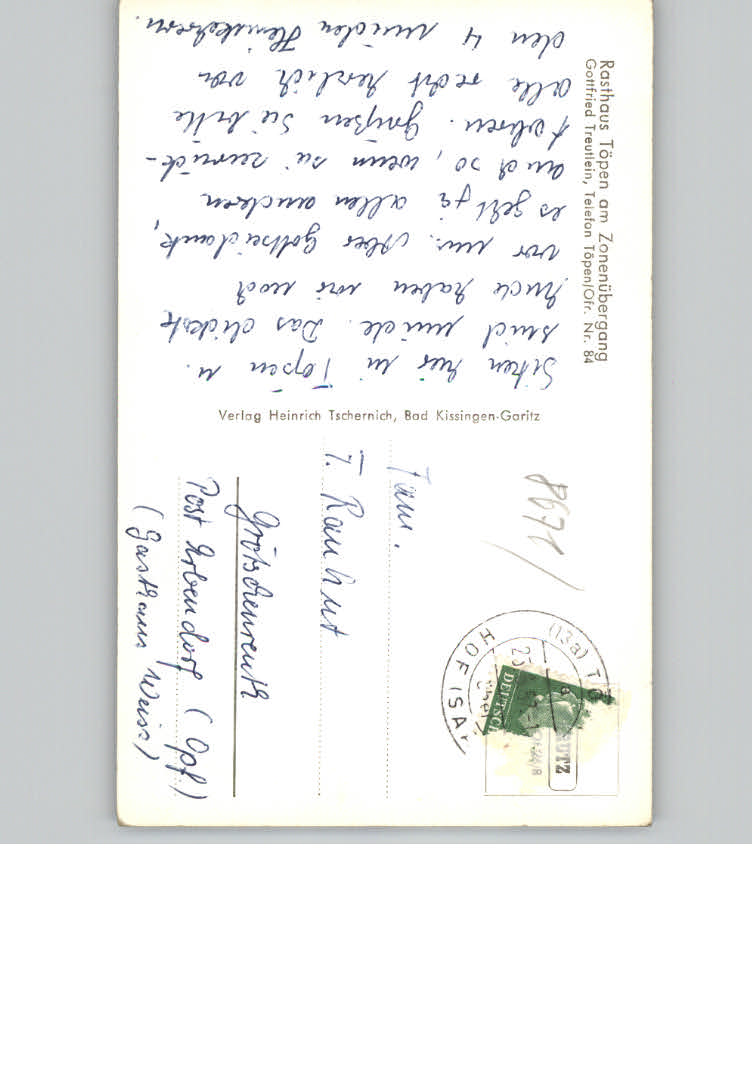 Rasthaus Töpen am Zonenübergang
Gottfried Treutlein, Telefon Töpen/Ofr. Nr. 84
Sitzen hier in Töpen u.
sind müde. Das dickste
Ende haben wir noch
vor uns. Aber Gottseidank,
es geht ja allen andern
auch so, wenn sie zurück-
fahren. Grüßen Sie bitte
alle recht herzlich von
den 4 müden Heimkehrern.
Verlag Heinrich Tschernich, Bad Kissingen-Garitz
Fam.
T. Rauhut
Grötschenreuth
Post Erbendorf (Opf)
(Gasthaus Weiss)
8671/
(13a) TÖ
HOF (SAA
DEUTSCH